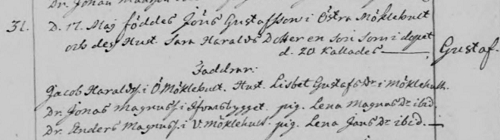 Dr. Jonas Magnus
31. D. 17. Maj föddes Jöns Gustafsson i Östra Möklehult
och dess Hust. Sara Haralds Dotter en son som i dopet
d. 20 Kallades Gustaf.
Faddrar:
Jacob Haralds. i Ö. Möklehult. Hust. Lisbet Gustafs Dr. i Möklehult.
Dr. Jonas Magnus. i pig. Lena Magnus Dr. ibid.
Dr. Anders Magnus. i V. Möklehult. pig. Lena Jons Dr. ibid.